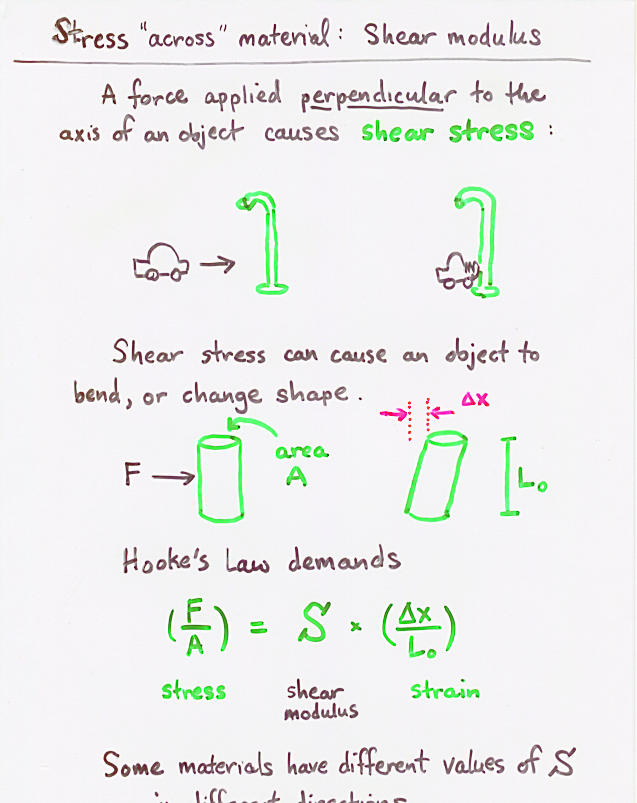 Stress "across" material: Shear modulus
A force applied perpendicular to the
axis of an object causes shear stress:
Shear stress can cause an object to
bend, or change shape.
Δx
F → area A
L₀
Hooke's Law demands
(F/A) = S × (Δx/L₀)
stress shear modulus strain
Some materials have different values of S
in different directions